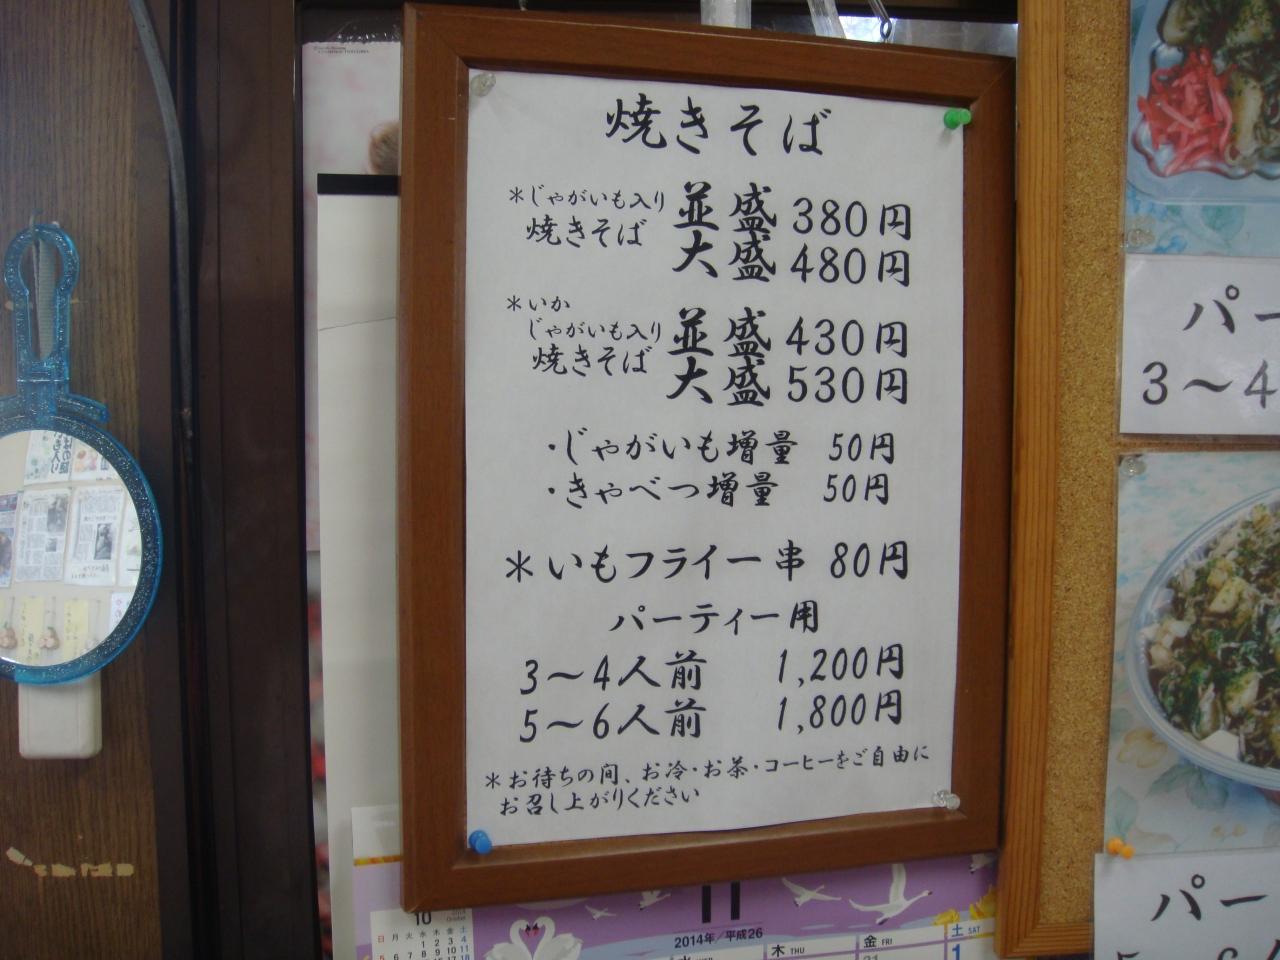 焼きそば
＊じゃがいも入り 並盛 380円
焼きそば 大盛 480円
＊いか
じゃがいも入り 並盛 430円
焼きそば 大盛 530円
・じゃがいも増量 50円
・きゃべつ増量 50円
＊いもフライ一串 80円
パーティー用
3〜4人前 1,200円
5〜6人前 1,800円
＊お待ちの間、お冷・お茶・コーヒーをご自由に
お召し上がりください
パー
3〜4
パー
10
October
日 月 火 水 木 金 土
1 2 3 4
11
2014年／平成26
木 THU
金 FRI
土 SAT
1